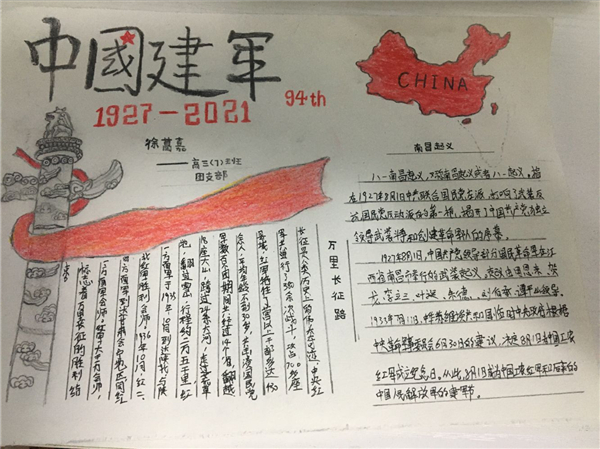 中國建军
1927-2021
94th
CHINA
徐葛嘉
——高三(7)班
团支部
南昌起义
八一南昌起义,
在1927年8月1日中共联合国民党左派,打响了武装反
抗国民党反动派的第一枪,揭开了中国共产党独立
领导武装斗争和创建革命军队的序幕。
1927年8月1日,中国共产党
江西南昌市举行的武装起义。
贺龙、李立三、叶挺、朱德、刘伯承、谭平山
1933年7月11日,中华苏维埃共和国临时中央政府根据
中央革命军事委员会6月30日的建议,决定8月1日为中国工农
红军成立纪念日。从此,8月1日成为中国工农红军和后来的
中国人民解放军的建军节。
万里长征路
长征是人类历史上的伟大
中央红
军共进行了380余次战斗,攻占700多座
县城,红军牺牲了营以上干部多达430
余人,平均年龄不到30岁,共击溃国民党
军数百个团,期间共经过14个省,翻越
18座大山,跨过24条大河,走过荒草
地,翻过雪山,行程约二万五千里,红
一方面军于1935年10月到达陕北,与陕
北红军胜利会师。1936年10月,红二、
四方面军到达甘肃会宁地区,同红
一方面军会师。红军三大主力会师,
标志着万里长征的胜利结
束。